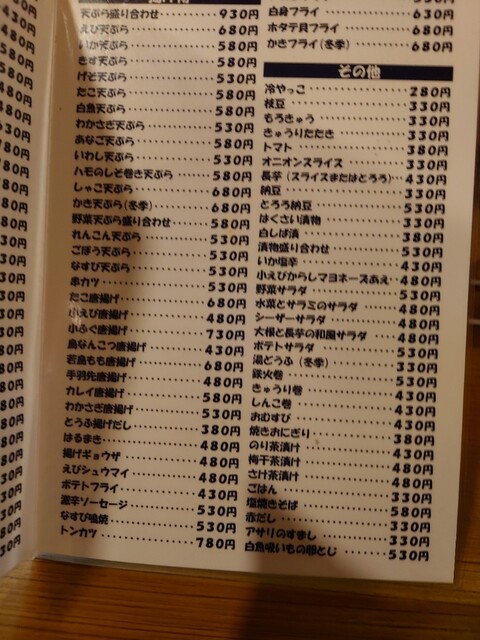 天ぷら盛り合わせ 930円
えび天ぷら 680円
いか天ぷら 580円
きす天ぷら 580円
げそ天ぷら 530円
たこ天ぷら 580円
白魚天ぷら 580円
わかさぎ天ぷら 530円
あなご天ぷら 580円
いわし天ぷら 530円
ハモのしそ巻き天ぷら 580円
しゃこ天ぷら 680円
かき天ぷら(冬季) 680円
野菜天ぷら盛り合わせ 580円
れんこん天ぷら 530円
ごぼう天ぷら 530円
なすび天ぷら 530円
串カツ 530円
たこ唐揚げ 680円
小えび唐揚げ 480円
小ふぐ唐揚げ 730円
鳥なんこつ唐揚げ 430円
若鳥もも唐揚げ 680円
手羽先唐揚げ 480円
カレイ唐揚げ 580円
わかさぎ唐揚げ 530円
とうふ揚げだし 380円
はるまき 480円
揚げギョウザ 480円
えびシュウマイ 480円
ポテトフライ 430円
激辛ソーセージ 530円
なすび鴫焼 530円
トンカツ 780円
白身フライ 630円
ホタテ貝フライ 680円
かきフライ(冬季) 680円
その他
冷やっこ 280円
枝豆 330円
もろきゅう 330円
きゅうりたたき 330円
トマト 380円
オニオンスライス 330円
長芋(スライスまたはとろろ) 430円
納豆 330円
とろろ納豆 530円
はくさい漬物 330円
白しば漬 380円
漬物盛り合わせ 530円
いか塩辛 430円
小えびからしマヨネーズあえ 480円
野菜サラダ 530円
水菜とサラミのサラダ 480円
シーザーサラダ 480円
大根と長芋の和風サラダ 480円
ポテトサラダ 530円
湯どうふ(冬季) 330円
鉄火巻 530円
きゅうり巻 430円
しんこ巻 430円
おむすび 430円
焼きおにぎり 380円
のり茶漬け 430円
梅干茶漬け 480円
さけ茶漬け 480円
ごはん 330円
塩焼きそば 580円
赤だし 330円
アサリのすまし 330円
白魚吸いもの卵とじ 530円